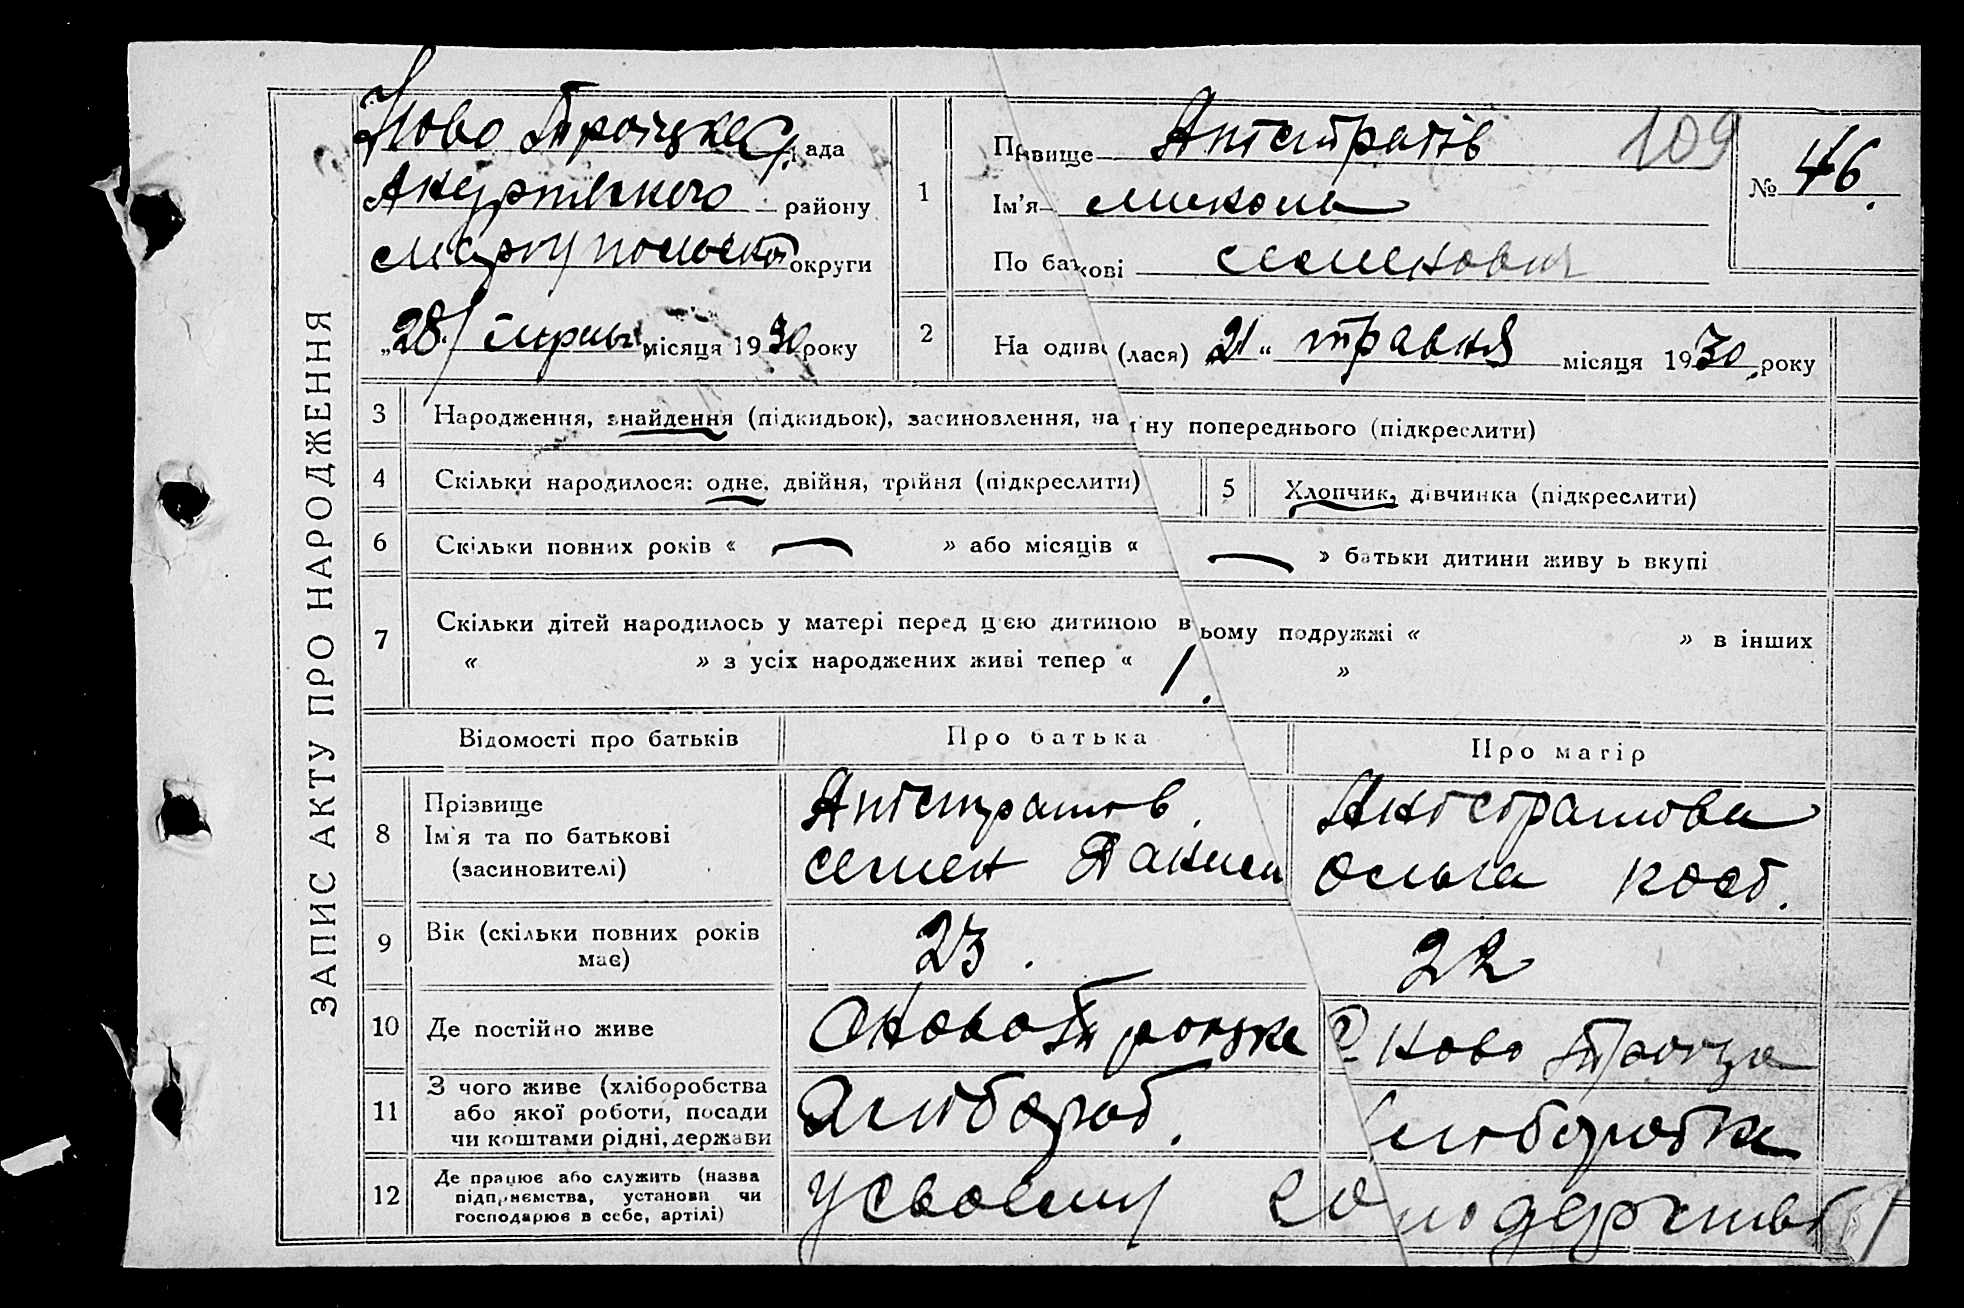 ЗАПИС АКТУ ПРО НАРОДЖЕННЯ
Ново Троїцька рада
району
Маріупольської округи
„28“ серпня місяця 1930 року
1
Прізвище Антистратів
109
№ 46.
Ім'я Микола
По батькові Семенович
2
На один (лася) 21 “ травня місяця 1930 року
3 Народження, знайдення (підкидьок), засиновлення, на ну попереднього (підкреслити)
4 Скільки народилося: одне, двійня, трійня (підкреслити)
5 Хлопчик, дівчинка (підкреслити)
6 Скільки повних років « — » або місяців « — » батьки дитини живу ь вкупі
7 Скільки дітей народилось у матері перед цією дитиною в ьому подружжі « » в інших
« » з усіх народжених живі тепер « 1. »
Відомості про батьків
Про батька
Про матір
8 Прізвище
Ім'я та по батькові
(засиновителі)
Антистратов
Семен
Антистратова
Ольга Кост.
9 Вік (скільки повних років
має)
23.
22
10 Де постійно живе
Ново Троїцке
Ново Троїцке
11 З чого живе (хліборобства
або якої роботи, посади
чи коштами рідні, держави
Хлібороб.
хліборобка
12 Де працює або служить (назва
підприємства, установи чи
господарює в себе, артілі)
у своєму господарстві